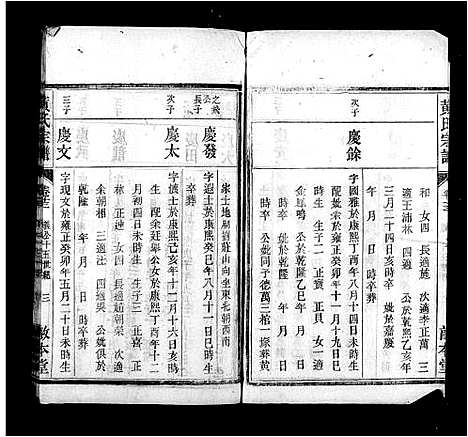 黃氏宗譜
和 女四 長適施 次適李正萬 三
適王沛林 四適 公於乾隆乙亥年
三月二十四日亥時卒葬
年 月 日 時卒葬
次子
慶餘
字國雅於康熙丁酉年八月十四日未時生
配金氏於雍正癸卯年十一月十九日巳
時生 生子二 正寶 正貝 女一適
金 公於乾隆乙巳年 月 日
時卒 於乾隆 年 月 日
時卒 公葬同子德萬三棺 葬黃
家士地廟 莊山向坐東北朝西南
之長子
慶發
字遐士於康熙癸巳年八月十二日巳時生
卒葬
次子
慶太
字護士於康熙己亥年十一月十六日亥時
生 配余廷舉女於康熙丁酉年十月十二
日未時生 生子二 正喜 正
林 正連 女四 長適趙朝榮 次適
余朝相 三適汪 四適吳 公 俱於
乾隆 年 月 日 時卒葬
三子
慶文
字現文於雍正癸卯年五月二十日未時生
黃氏宗譜
卷十三
公十五世紀
三
敦本堂